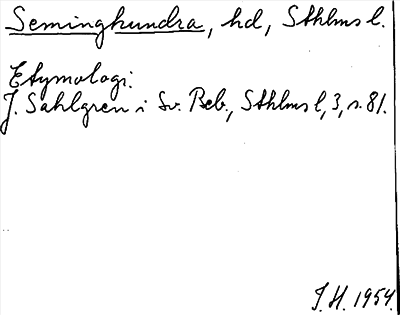 Seminghundra, hd, Sthlms l.
Etymologi:
J. Sahlgren i Sv. Beb., Sthlms l, 3, s. 81.
J. H. 1954.